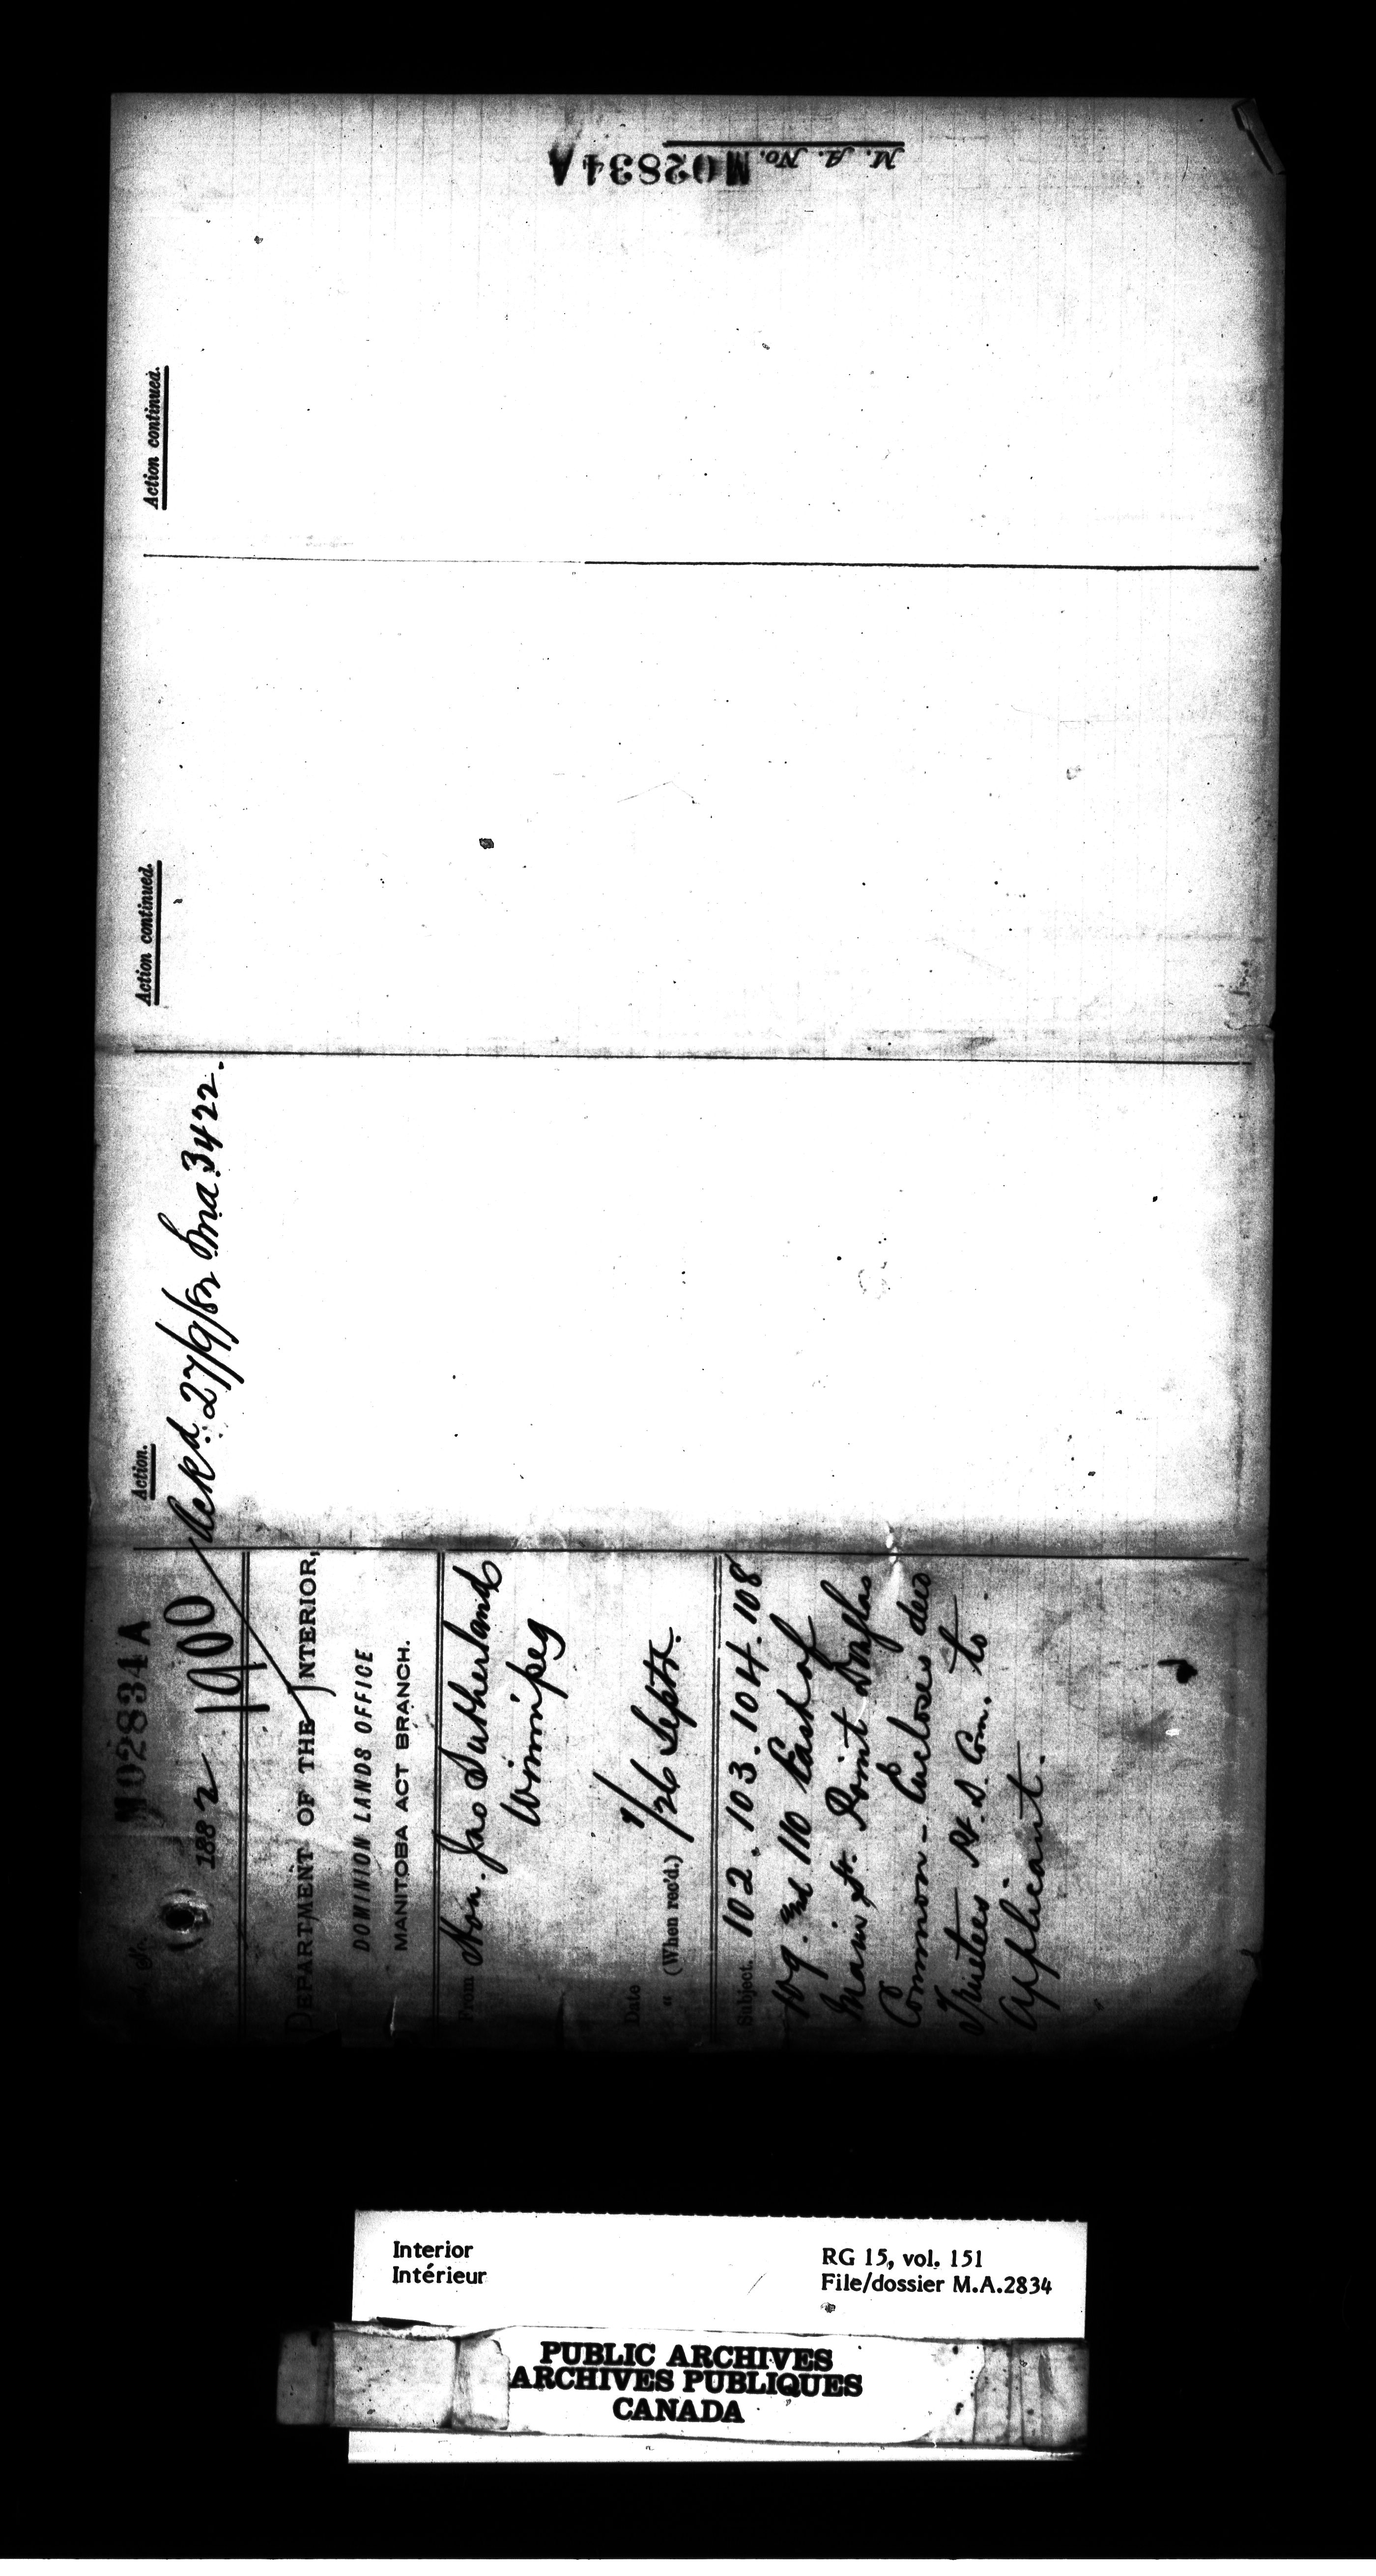 M. A. No. M02834A
M02834A
1882 1900
DEPARTMENT OF THE INTERIOR,
DOMINION LANDS OFFICE
MANITOBA ACT BRANCH.
From Hon. Jno Sutherland
Winnipeg
Date
" (When rec'd.) /26 Septr.
Subject. 102. 103. 104. 108
109. and 110 East of
Main St. Point Douglas
Common - Encloses deed
Trustees P. D. Com. to
Applicant.
Action.
Ackd. 27/9/82 Lma. 3422.
Action continued.
Action continued.
Interior
Intérieur
RG 15, vol. 151
File/dossier M.A.2834
PUBLIC ARCHIVES
ARCHIVES PUBLIQUES
CANADA